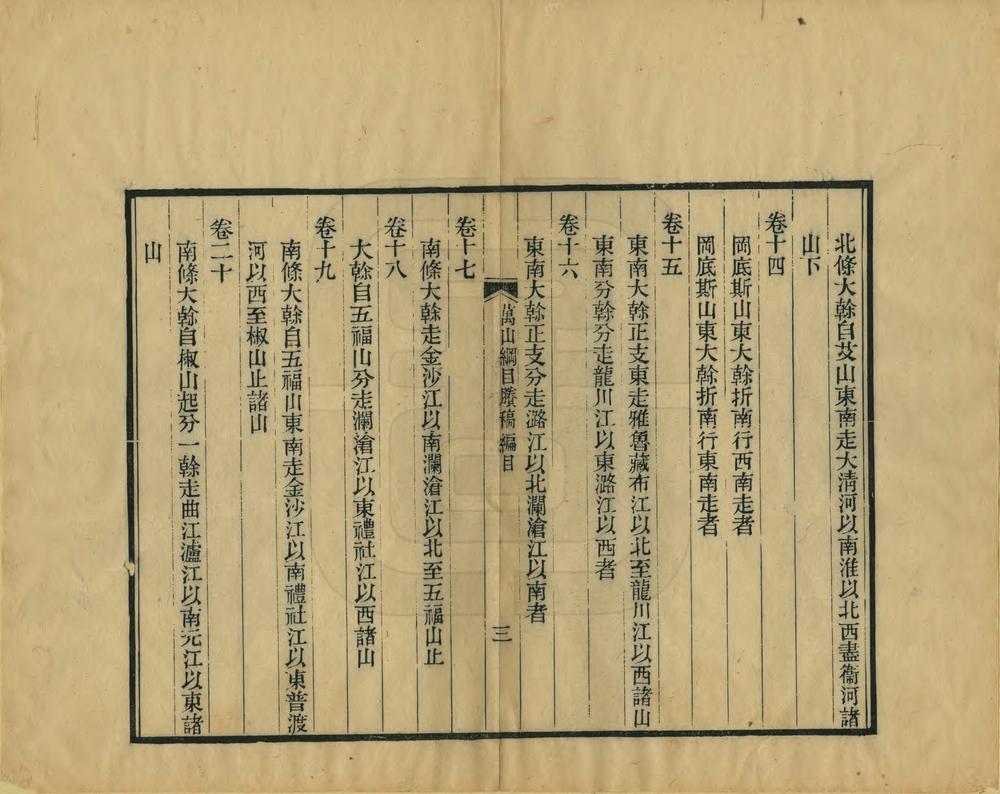 北條大榦自艾山東南走大清河以南淮以北西盡衞河諸
山下
卷十四
岡底斯山東大榦折南行西南走者
岡底斯山東大榦折南行東南走者
卷十五
東南大榦正支東走雅魯藏布江以北至龍川江以西諸山
東南分榦分走龍川江以東潞江以西者
卷十六
東南大榦正支分走潞江以北瀾滄江以南者
萬山綱目賸稿編目
三
卷十七
南條大榦走金沙江以南瀾滄江以北至五福山止
卷十八
大榦自五福山分走瀾滄江以東禮社江以西諸山
卷十九
南條大榦自五福山東南走金沙江以南禮社江以東普渡
河以西至椒山止諸山
卷二十
南條大榦自椒山起分一榦走曲江瀘江以南元江以東諸
山